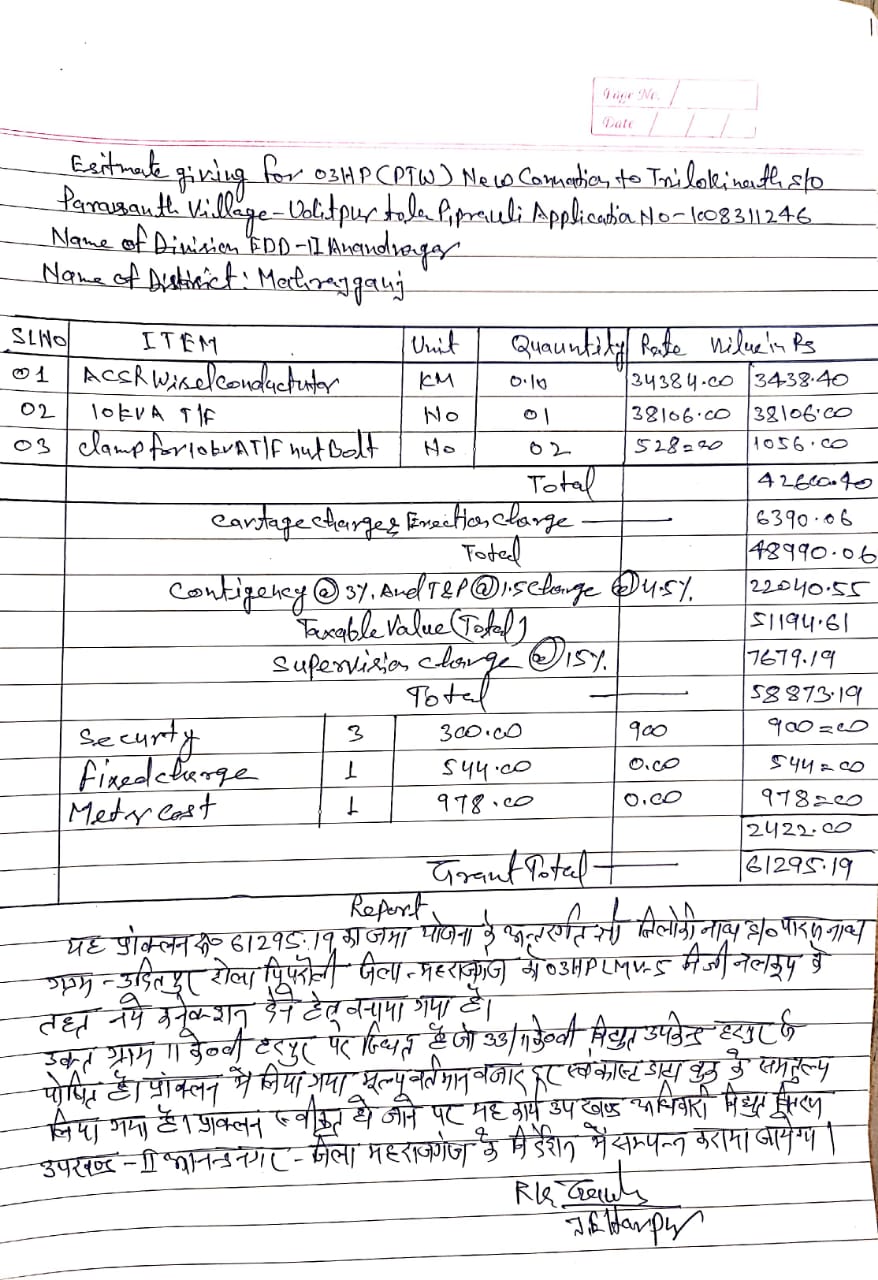 Page No.
Date / / /
Esitmate giving for 03HP (PTW) New Connection to Trilokinath s/o
Parasanth Village - Uditpur tola Piprauli Application No - 1008311246
Name of Division EDD-II Anandnagar
Name of District: Mahrajganj
SLNo ITEM Unit Quauntity Rate Value in Rs
01 ACSR Wisel conductutor KM 0.10 34384.00 3438.40
02 10 kVA T/F No 01 38106.00 38106.00
03 clamp for 10 kVA T/F nut Bolt No 02 528=00 1056.00
Total 42600.40
Cartage charge & Erection charge 6390.06
Total 48990.06
Contigency @ 3%. And T&P @ 1.5 Charge @ 4.5%. 22040.55
Taxable Value (Total) 51194.61
Supervision charge @ 15%. 7679.19
Total 58873.19
Securty 3 300.00 900 900=00
fixed charge 1 544.00 0.00 544=00
Meter Cost 1 978.00 0.00 978=00
2422.00
Grant Total 61295.19
Report
यह प्रांक्लन रू० 61295.19 का जमा योजना के अन्तर्गत श्री त्रिलोकी नाथ s/o पारस नाथ
ग्राम - उदितपुर टोला पिपरौली जिला - महराजगंज को 03HP LMV-5 निजी नलकूप के
तहत नये कनेक्शन देने हेतु बनाया गया है।
उक्त ग्राम 11 के०वी हरपुर पर स्थित है जो 33/11 के०वी विद्युत उपकेन्द्र हरपुर से
पोषित है। प्रांक्लन में लिया गया मूल्य वर्तमान बजार दर एवं कास्ट डाटा बुक के समतुल्य
लिया गया है। प्राक्लन स्वीकृत हो जाने पर यह कार्य उप खण्ड अधिकारी विद्युत वितरण
उपखण्ड - II आनन्दनगर - जिला महराजगंज के निर्देशन में सम्पन्न कराया जायेगा।
J.E Harpur